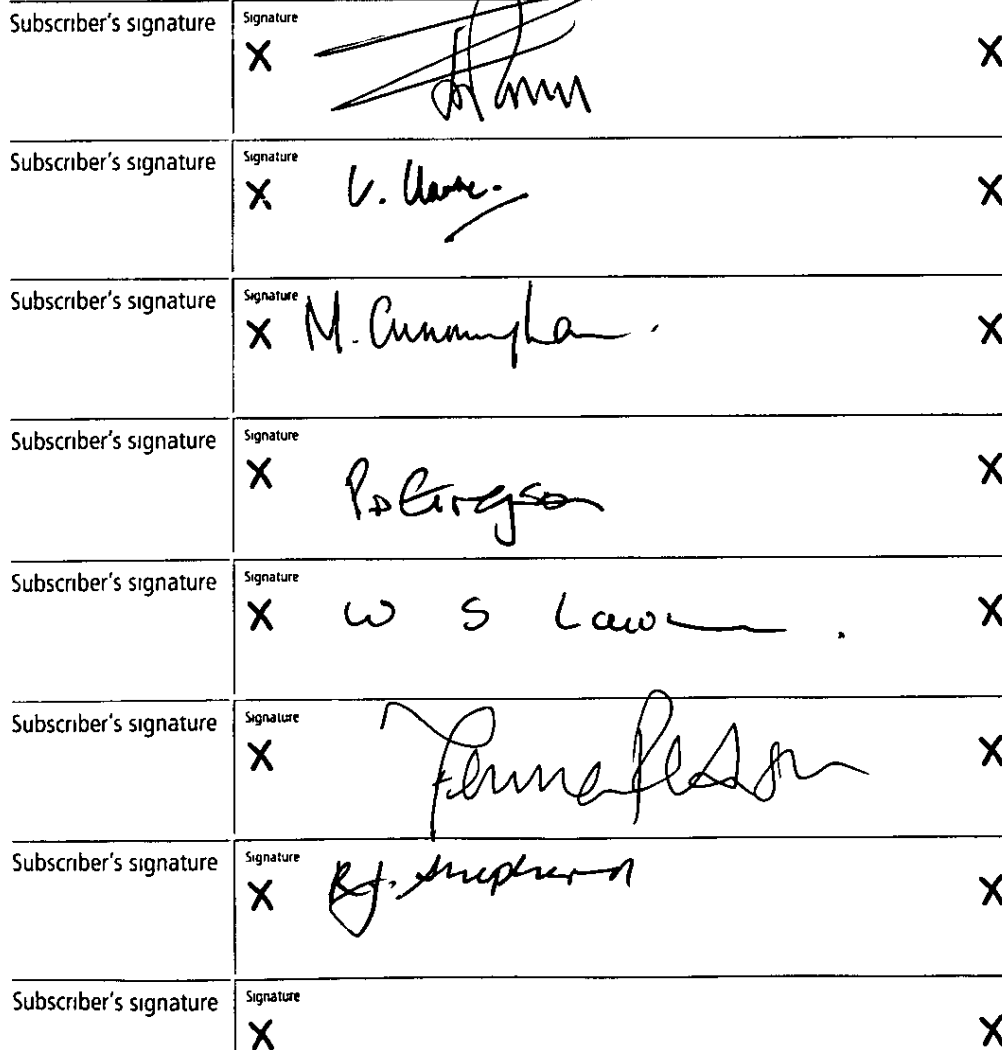 Subscriber's signature Signature
X X
Subscriber's signature Signature
X V. X
Subscriber's signature Signature
X M. Cunningham. X
Subscriber's signature Signature
X P D Gregson X
Subscriber's signature Signature
X W S X
Subscriber's signature Signature
X X
Subscriber's signature Signature
X R J. Shepherd X
Subscriber's signature Signature
X X